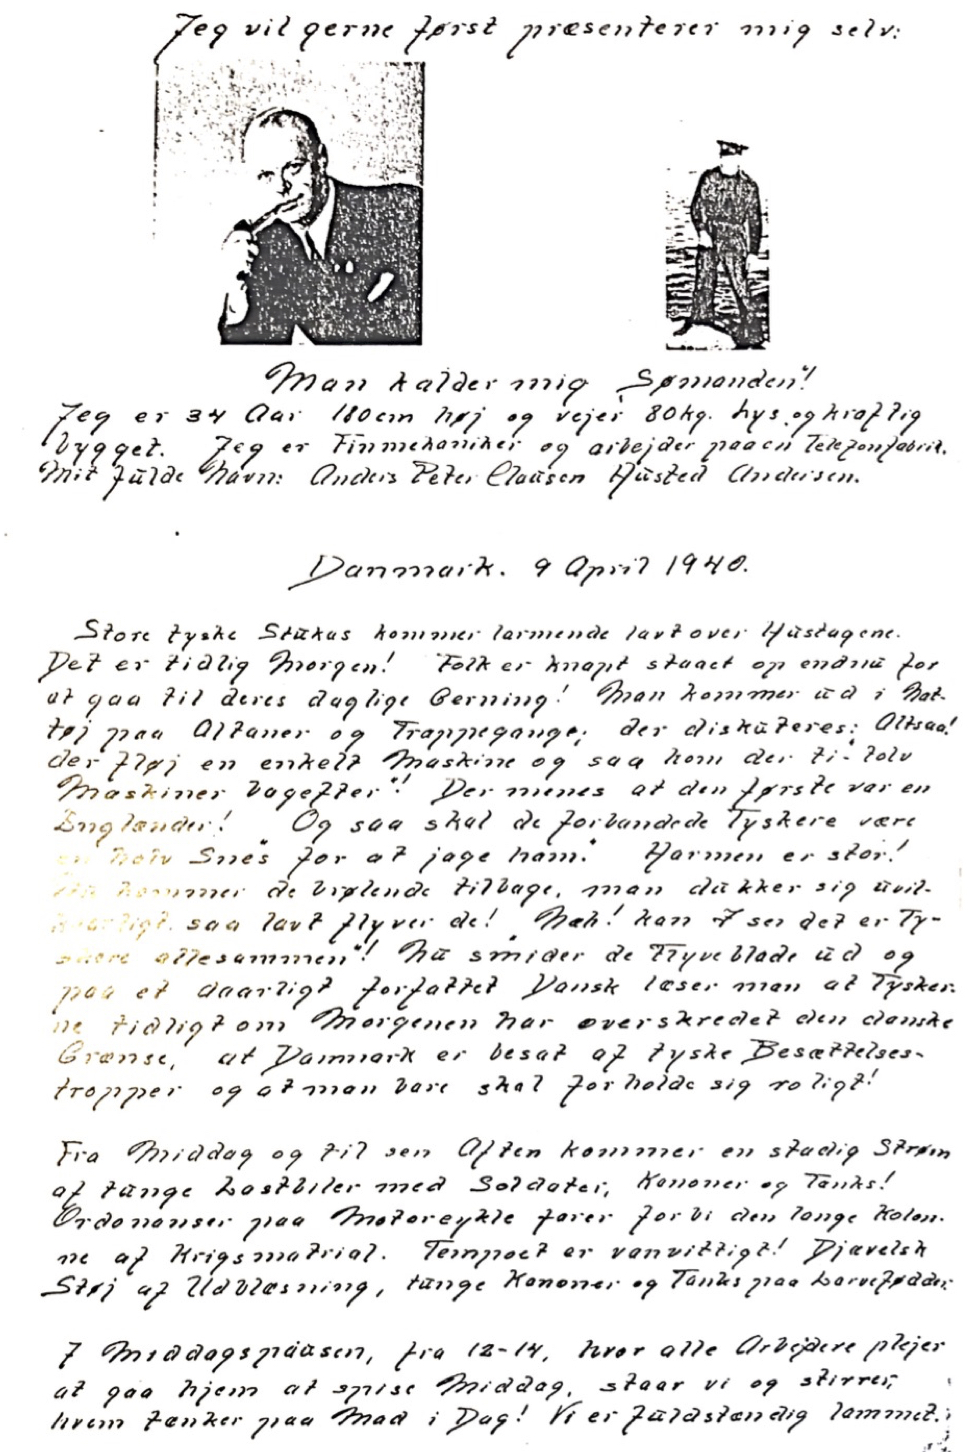 Jeg vil gerne først præsenterer mig selv:
Man kalder mig "Sømanden"!
Jeg er 34 Aar 180cm høj og vejer 80kg. Lys og kraftig
bygget. Jeg er Finmekaniker og arbejder paa en Telefonfabrik.
Mit fulde Navn: Anders Peter Clausen Hüsted Andersen.
Danmark. 9 April 1940.
Store tyske Stukas kommer larmende lavt over Hustagene.
Det er tidlig Morgen! Folk er knapt staaet op endnu for
at gaa til deres daglige Gerning! Man kommer ud i Nat-
tøj paa Altaner og Trappegange; der diskuteres: Altsaa!
der fløj en enkelt Maskine og saa kom der ti-tolv
Maskiner bagefter"! Der menes at den første var en
Englænder! Og saa skal de forbandede Tyskere være
en halv Snes for at jage ham." Harmen er stor!
Nu kommer de brølende tilbage, man dukker sig uvil-
kaarligt saa lavt flyver de! "Næh! kan I se, det er Ty-
skere allesammen"! Nu smider de Flyveblade ud og
paa et daarligt forfattet Dansk læser man at Tysker-
ne tidligt om Morgenen har overskredet den danske
Grænse, at Danmark er besat af tyske Besættelses-
tropper og at man bare skal forholde sig roligt!
Fra Middag og til sen Aften kommer en stadig Strøm
af tunge Lastbiler med Soldater, Kanoner og Tanks!
Ordonanser paa Motorcykle farer forbi den lange Kolon-
ne af Krigsmatrial. Tempoet er vanvittigt! Djævelsk
Støj af Udblæsning, tunge Kanoner og Tanks paa Larvefødder.
I Middagspausen, fra 12-14, hvor alle Arbejdere plejer
at gaa hjem at spise Middag, staar vi og stirrer,
hvem tænker paa Mad i Dag! Vi er fuldstændig lammet.